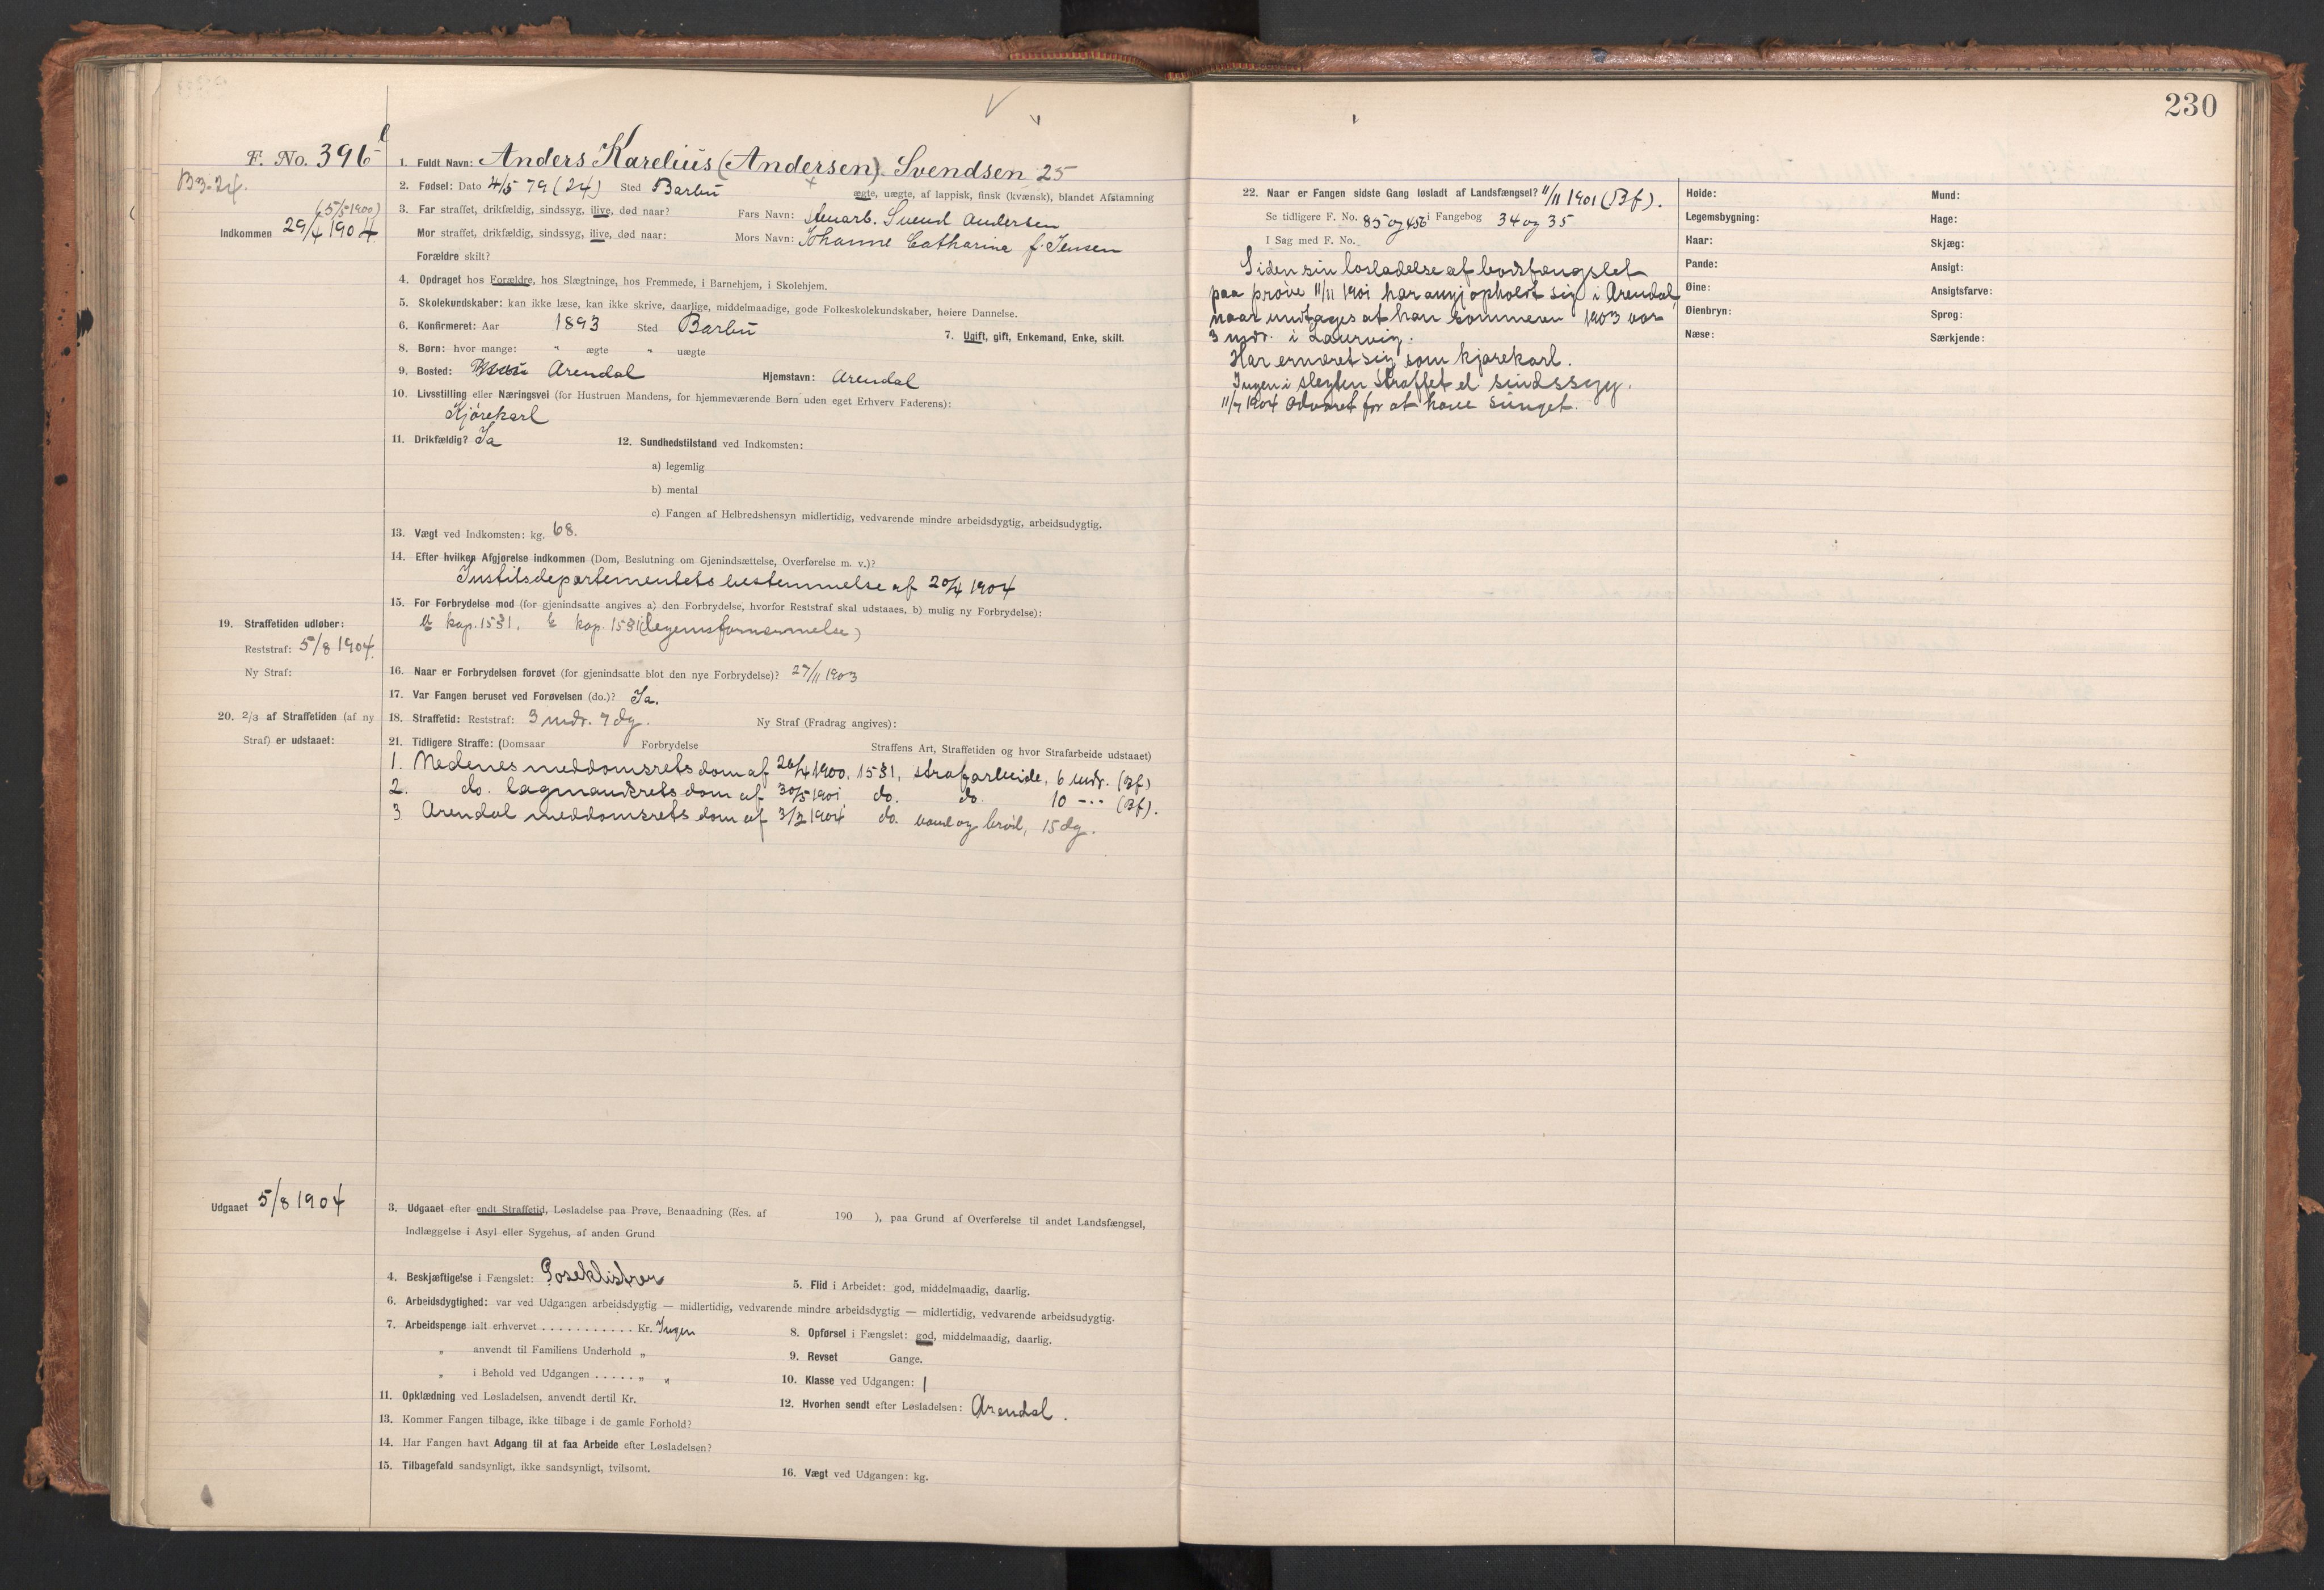 230
F. No. 396
B3-24.
(5/5 1900)
Indkommen 29/4 1904
1. Fuldt Navn: Anders Karelius (Andersen) Svendsen 25
2. Fødsel: Dato 4/5 79 (24) Sted Barbu
ægte, uægte, af lappisk, finsk (kvænsk), blandet Afstamning
3. Far straffet, drikfældig, sindssyg, ilive, død naar? Fars Navn: Stenarb. Svend Andersen
Mor straffet, drikfældig, sindssyg, ilive, død naar: Mors Navn: Johanne Catharina f. Jensen
Forældre skilt?
4. Opdraget hos Forældre, hos Slægtninge, hos Fremmede, i Barnehjem, i Skolehjem.
5. Skolekundskaber: kan ikke læse, kan ikke skrive, daarlige, middelmaadige, gode Folkeskolekundskaber, høiere Dannelse.
6. Konfirmeret: Aar 1893 Sted Barbu
7. Ugift, gift, Enkemand, Enke, skilt.
8. Børn: hvor mange: " ægte " uægte
9. Bosted: Arendal Hjemstavn: Arendal
10. Livsstilling eller Næringsvei (for Hustruen Mandens, for hjemmeværende Børn uden eget Erhverv Faderens):
Kjørekarl
11. Drikfældig? Ja 12. Sundhedstilstand ved Indkomsten:
a) legemlig
b) mental
c) Fangen af Helbredshensyn midlertidig, vedvarende mindre arbeidsdygtig, arbeidsudygtig.
13. Vægt ved Indkomsten: kg. 68.
14. Efter hvilken Afgjørelse indkommen (Dom, Beslutning om Gjenindsættelse, Overførelse m. v.)?
Justitsdepartementets bestemmelse af 20/4 1904
15. For Forbrydelse mod (for gjenindsatte angives a) den Forbrydelse, hvorfor Reststraf skal udstaaes, b) mulig ny Forbrydelse):
a kap. 15 § 1. b kap. 15 § 1 (legemsfornærmelse)
19. Straffetiden udløber:
Reststraf: 5/8 1904.
Ny Straf:
16. Naar er Forbrydelsen forøvet (for gjenindsatte blot den nye Forbrydelse)? 27/11 1903
17. Var Fangen beruset ved Forøvelsen (do.)? Ja.
20. 2/3 af Straffetiden (af ny
Straf) er udstaaet:
18. Straffetid: Reststraf: 3 mdr. 7 dg. Ny Straf (Fradrag angives):
21. Tidligere Straffe: (Domsaar Forbrydelse Straffens Art, Straffetiden og hvor Strafarbeide udstaaet)
1. Nedenes meddomsrets dom af 26/4 1900, 15 § 1, strafarbeide, 6 mdr. (Bf)
2. do. lagmandsrets dom af 30/5 1901 do. do. 10 -"- (Bf).
3 Arendal meddomsrets dom af 3/2 1904 do. vand og brød, 15 dg.
Udgaaet 5/8 1904
3. Udgaaet efter endt Straffetid, Løsladelse paa Prøve, Benaadning (Res. af 190 ), paa Grund af Overførelse til andet Landsfængsel,
Indlæggelse i Asyl eller Sygehus, af anden Grund
4. Beskjæftigelse i Fængslet: Poseklistrer 5. Flid i Arbeidet: god, middelmaadig, daarlig.
6. Arbeidsdygtighed: var ved Udgangen arbeidsdygtig — midlertidig, vedvarende mindre arbeidsdygtig — midlertidig, vedvarende arbeidsudygtig.
7. Arbeidspenge ialt erhvervet ........... Kr. Ingen 8. Opførsel i Fængslet: god, middelmaadig, daarlig.
" anvendt til Familiens Underhold " 9. Revset Gange.
" i Behold ved Udgangen ..... " " 10. Klasse ved Udgangen: 1
11. Opklædning ved Løsladelsen, anvendt dertil Kr. 12. Hvorhen sendt efter Løsladelsen: Arendal.
13. Kommer Fangen tilbage, ikke tilbage i de gamle Forhold?
14. Har Fangen havt Adgang til at faa Arbeide efter Løsladelsen?
15. Tilbagefald sandsynligt, ikke sandsynligt, tvilsomt. 16. Vægt ved Udgangen: kg.
22. Naar er Fangen sidste Gang løsladt af Landsfængsel? 11/11 1901 (Bf).
Se tidligere F. No. 85 og 456 i Fangebog 34 og 35
I Sag med F. No.
Siden sin løsladelse af bodsfængslet
paa prøve 11/11 1901 har angj opholdt sig i Arendal,
naar undtages at han sommeren 1903 var
3 mdr. i Laurvig.
Har ernæret sig som kjørekarl.
Ingen i slegten straffet el sindssyg.
11/7 1904 advaret for at have sunget.
Høide: Mund:
Legemsbygning: Hage:
Haar: Skjæg:
Pande: Ansigt:
Øine: Ansigtsfarve:
Øienbryn: Sprog:
Næse: Særkjende: